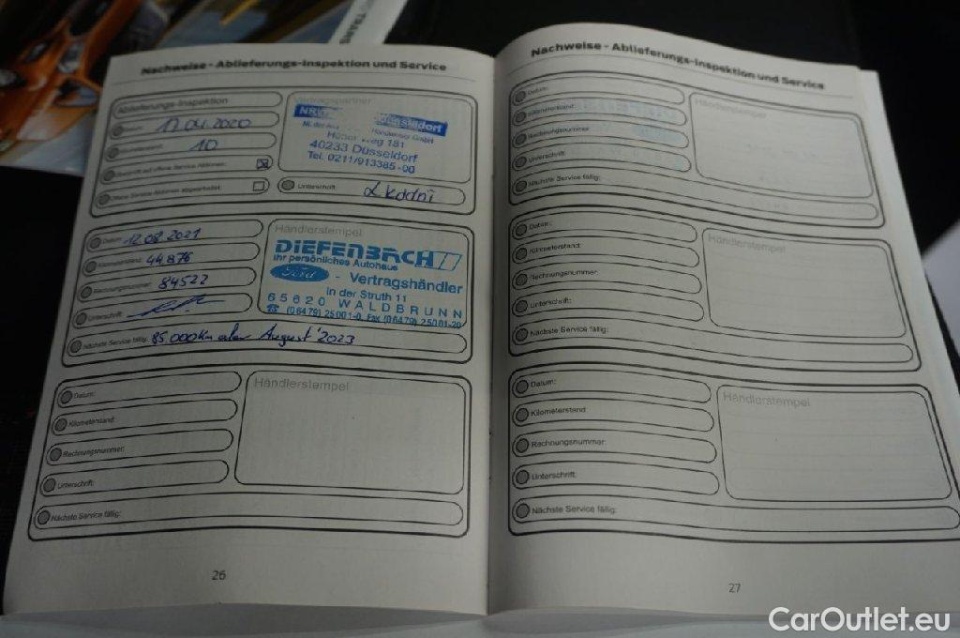 Nachweise - Ablieferungs-Inspektion und Service
Ablieferungs-Inspektion
17.04.2020
10
40233 Düsseldorf
Tel. 0211/913385-00
Unterschrift:
Datum: 12.08.2021
Kilometerstand: 44.876
Rechnungsnummer: 84522
Unterschrift:
Nächste Service fällig: 85 000Km oder August '2023
Händlerstempel
DIEFENBACH
Ihr persönliches Autohaus
Ford - Vertragshändler
in der Struth 11
65620 WALDBRUNN
☎ (06479) 25001-0, Fax (06479) 25001-20
Datum:
Kilometerstand:
Rechnungsnummer:
Unterschrift:
Nächste Service fällig:
Händlerstempel
26
Nachweise - Ablieferungs-Inspektion und Service
Datum:
Kilometerstand:
Rechnungsnummer:
Unterschrift:
Nächste Service fällig:
Händlerstempel
Datum:
Kilometerstand:
Rechnungsnummer:
Unterschrift:
Nächste Service fällig:
Händlerstempel
Datum:
Kilometerstand:
Rechnungsnummer:
Unterschrift:
Nächste Service fällig:
Händlerstempel
27
CarOutlet.eu